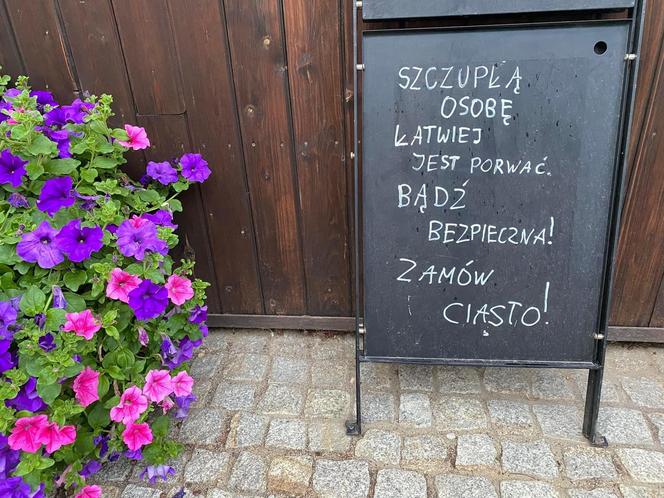 SZCZUPŁĄ
OSOBĘ
ŁATWIEJ
JEST PORWAĆ.
BĄDŹ
BEZPIECZNA!
ZAMÓW
CIASTO!